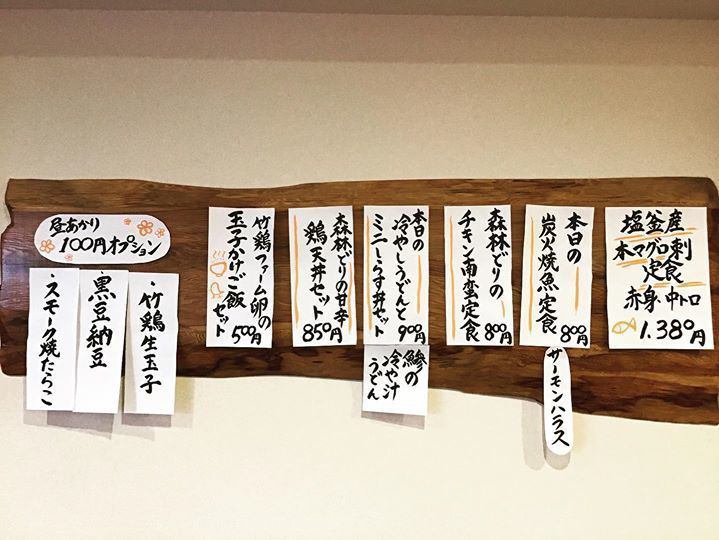 塩釜産
本マグロ刺
定食
赤身・中トロ
1.380円
本日の
炭火焼魚定食
800円
サーモンハラス
森林どりの
チキン南蛮定食
800円
本日の
冷やしうどんと
ミニしらす丼セット
900円
鯵の
冷や汁
うどん
森林どりの甘辛
鶏天丼セット
850円
竹鶏ファーム卵の
玉子かけご飯
セット
500円
昼あかり
100円オプション
・竹鶏生玉子
・黒豆納豆
・スモーク焼たらこ